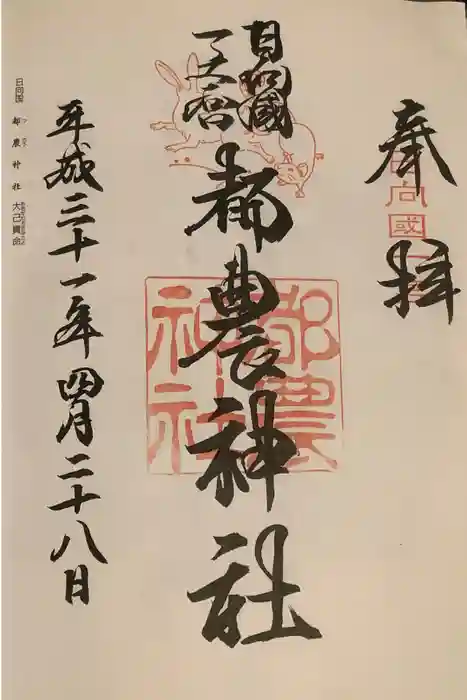 奉拝
日向國
日向國
一之宮
都農神社
都農神社
平成三十一年四月二十八日
日向国 都農神社 大己貴命